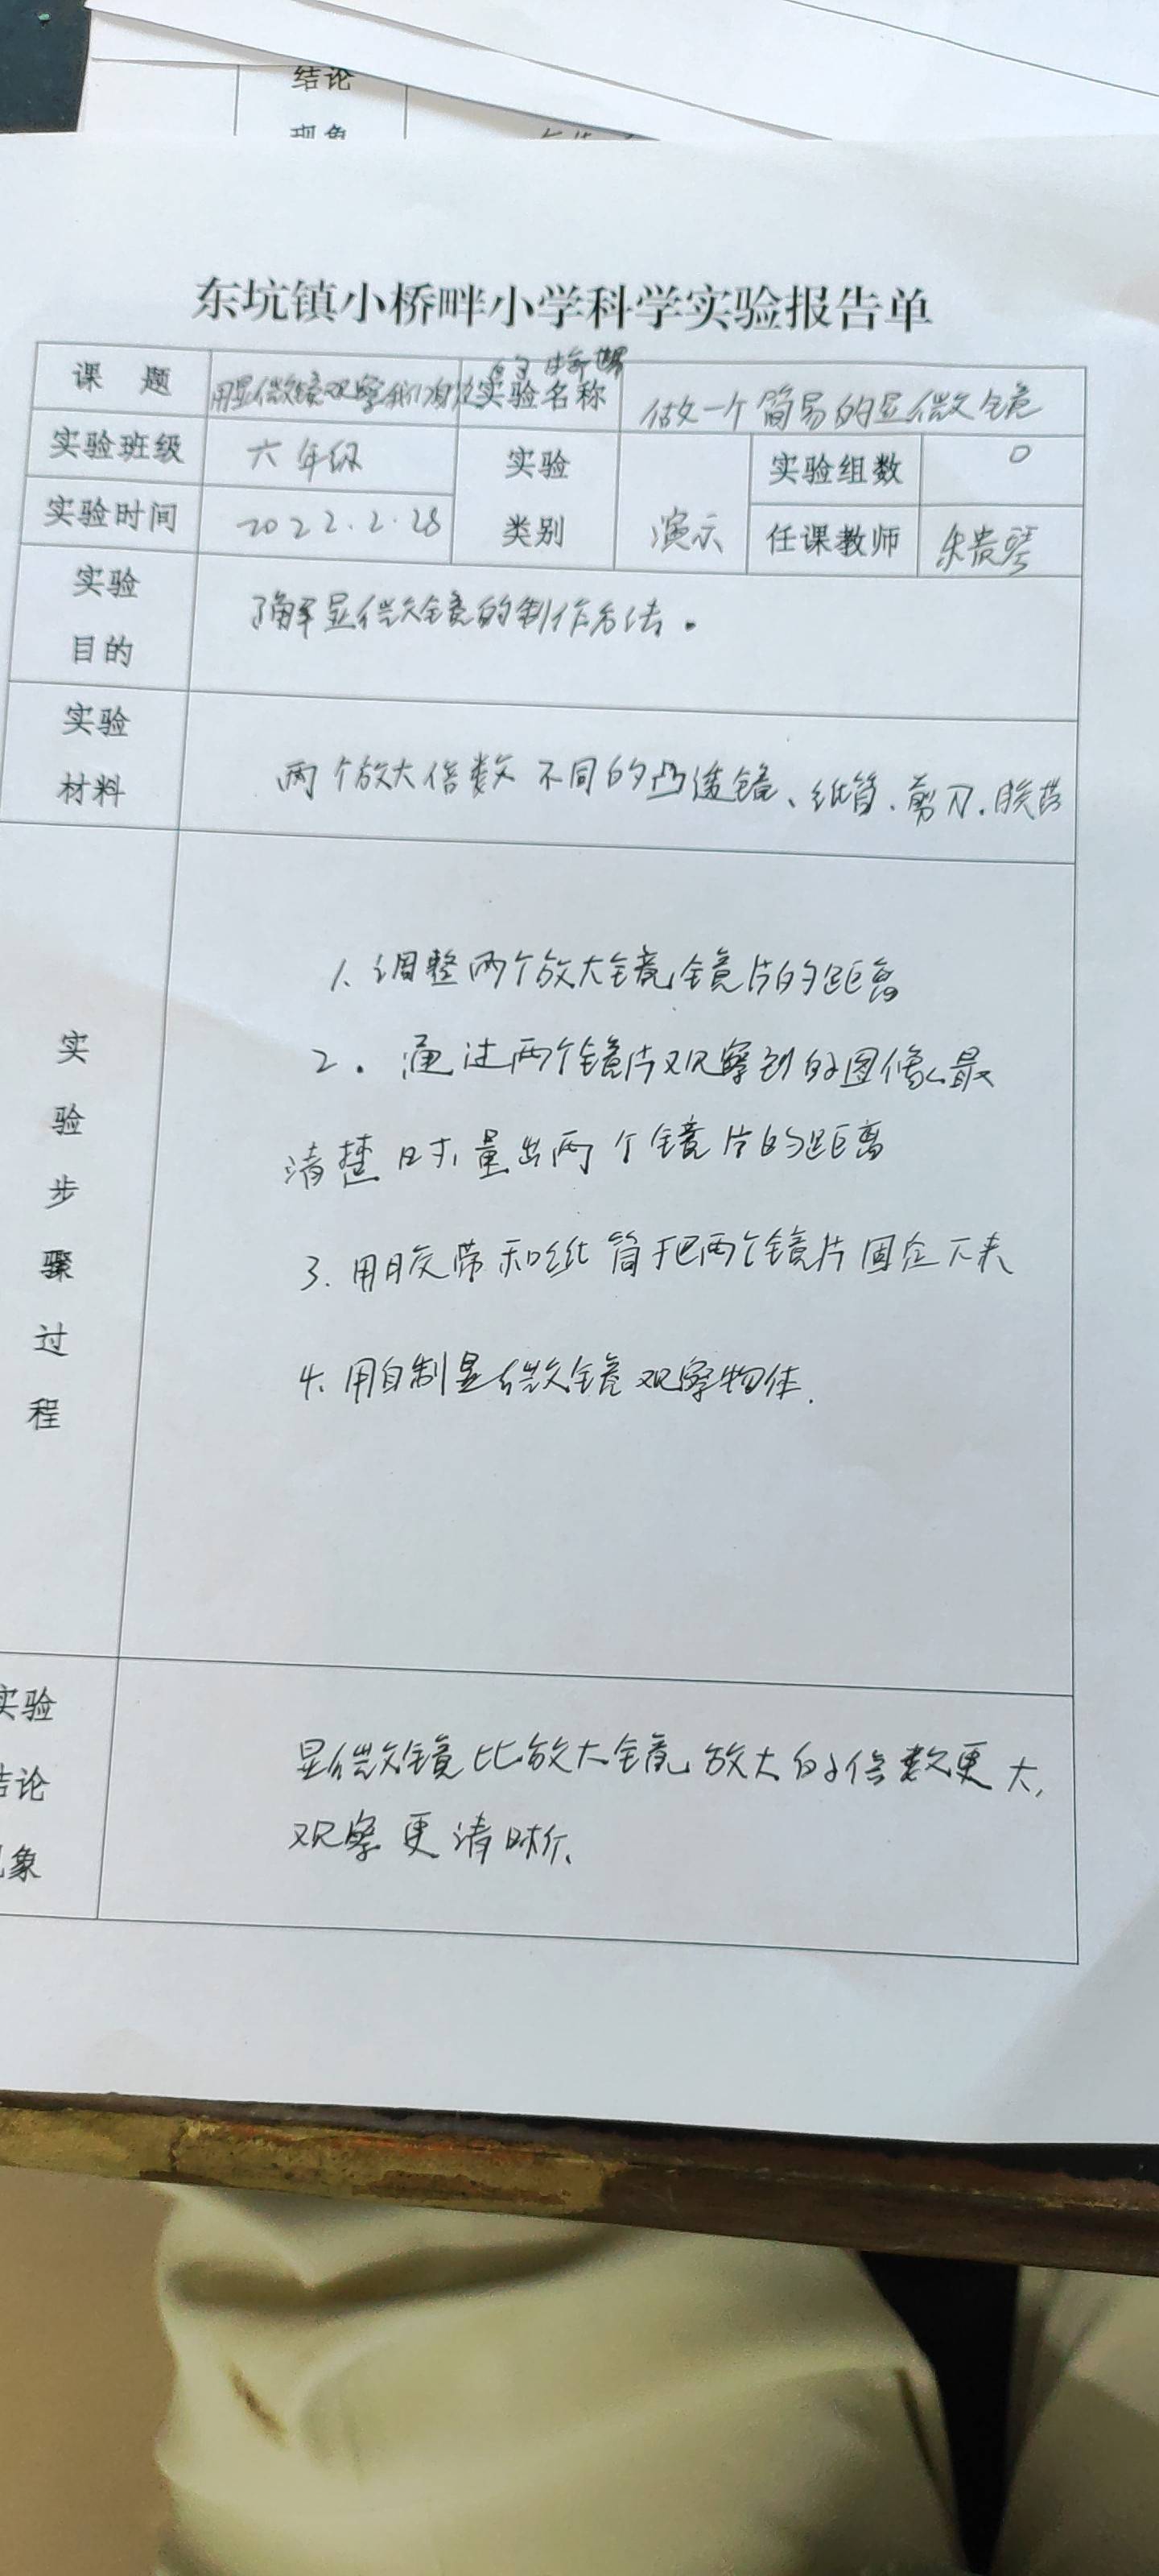 结论
现象
东坑镇小桥畔小学科学实验报告单
课 题 用显微镜观察我们身边 的 世界 实验名称 做一个简易的显微镜
实验班级 六年级 实验 实验组数 0
实验时间 2022.2.28 类别 演示 任课教师 贵琴
实验
目的
了解显微镜的制作方法。
实验
材料
两个放大倍数不同的凸透镜、纸筒、剪刀、胶带
实
验
步
骤
过
程
1、调整两个放大镜镜片的距离
2. 通过两个镜片观察到的图像最
清楚时,量出两个镜片的距离
3. 用胶带和纸筒把两个镜片固定下来
4、用自制显微镜观察物体.
实验
结论
现象
显微镜比放大镜放大的倍数更大,
观察更清晰、